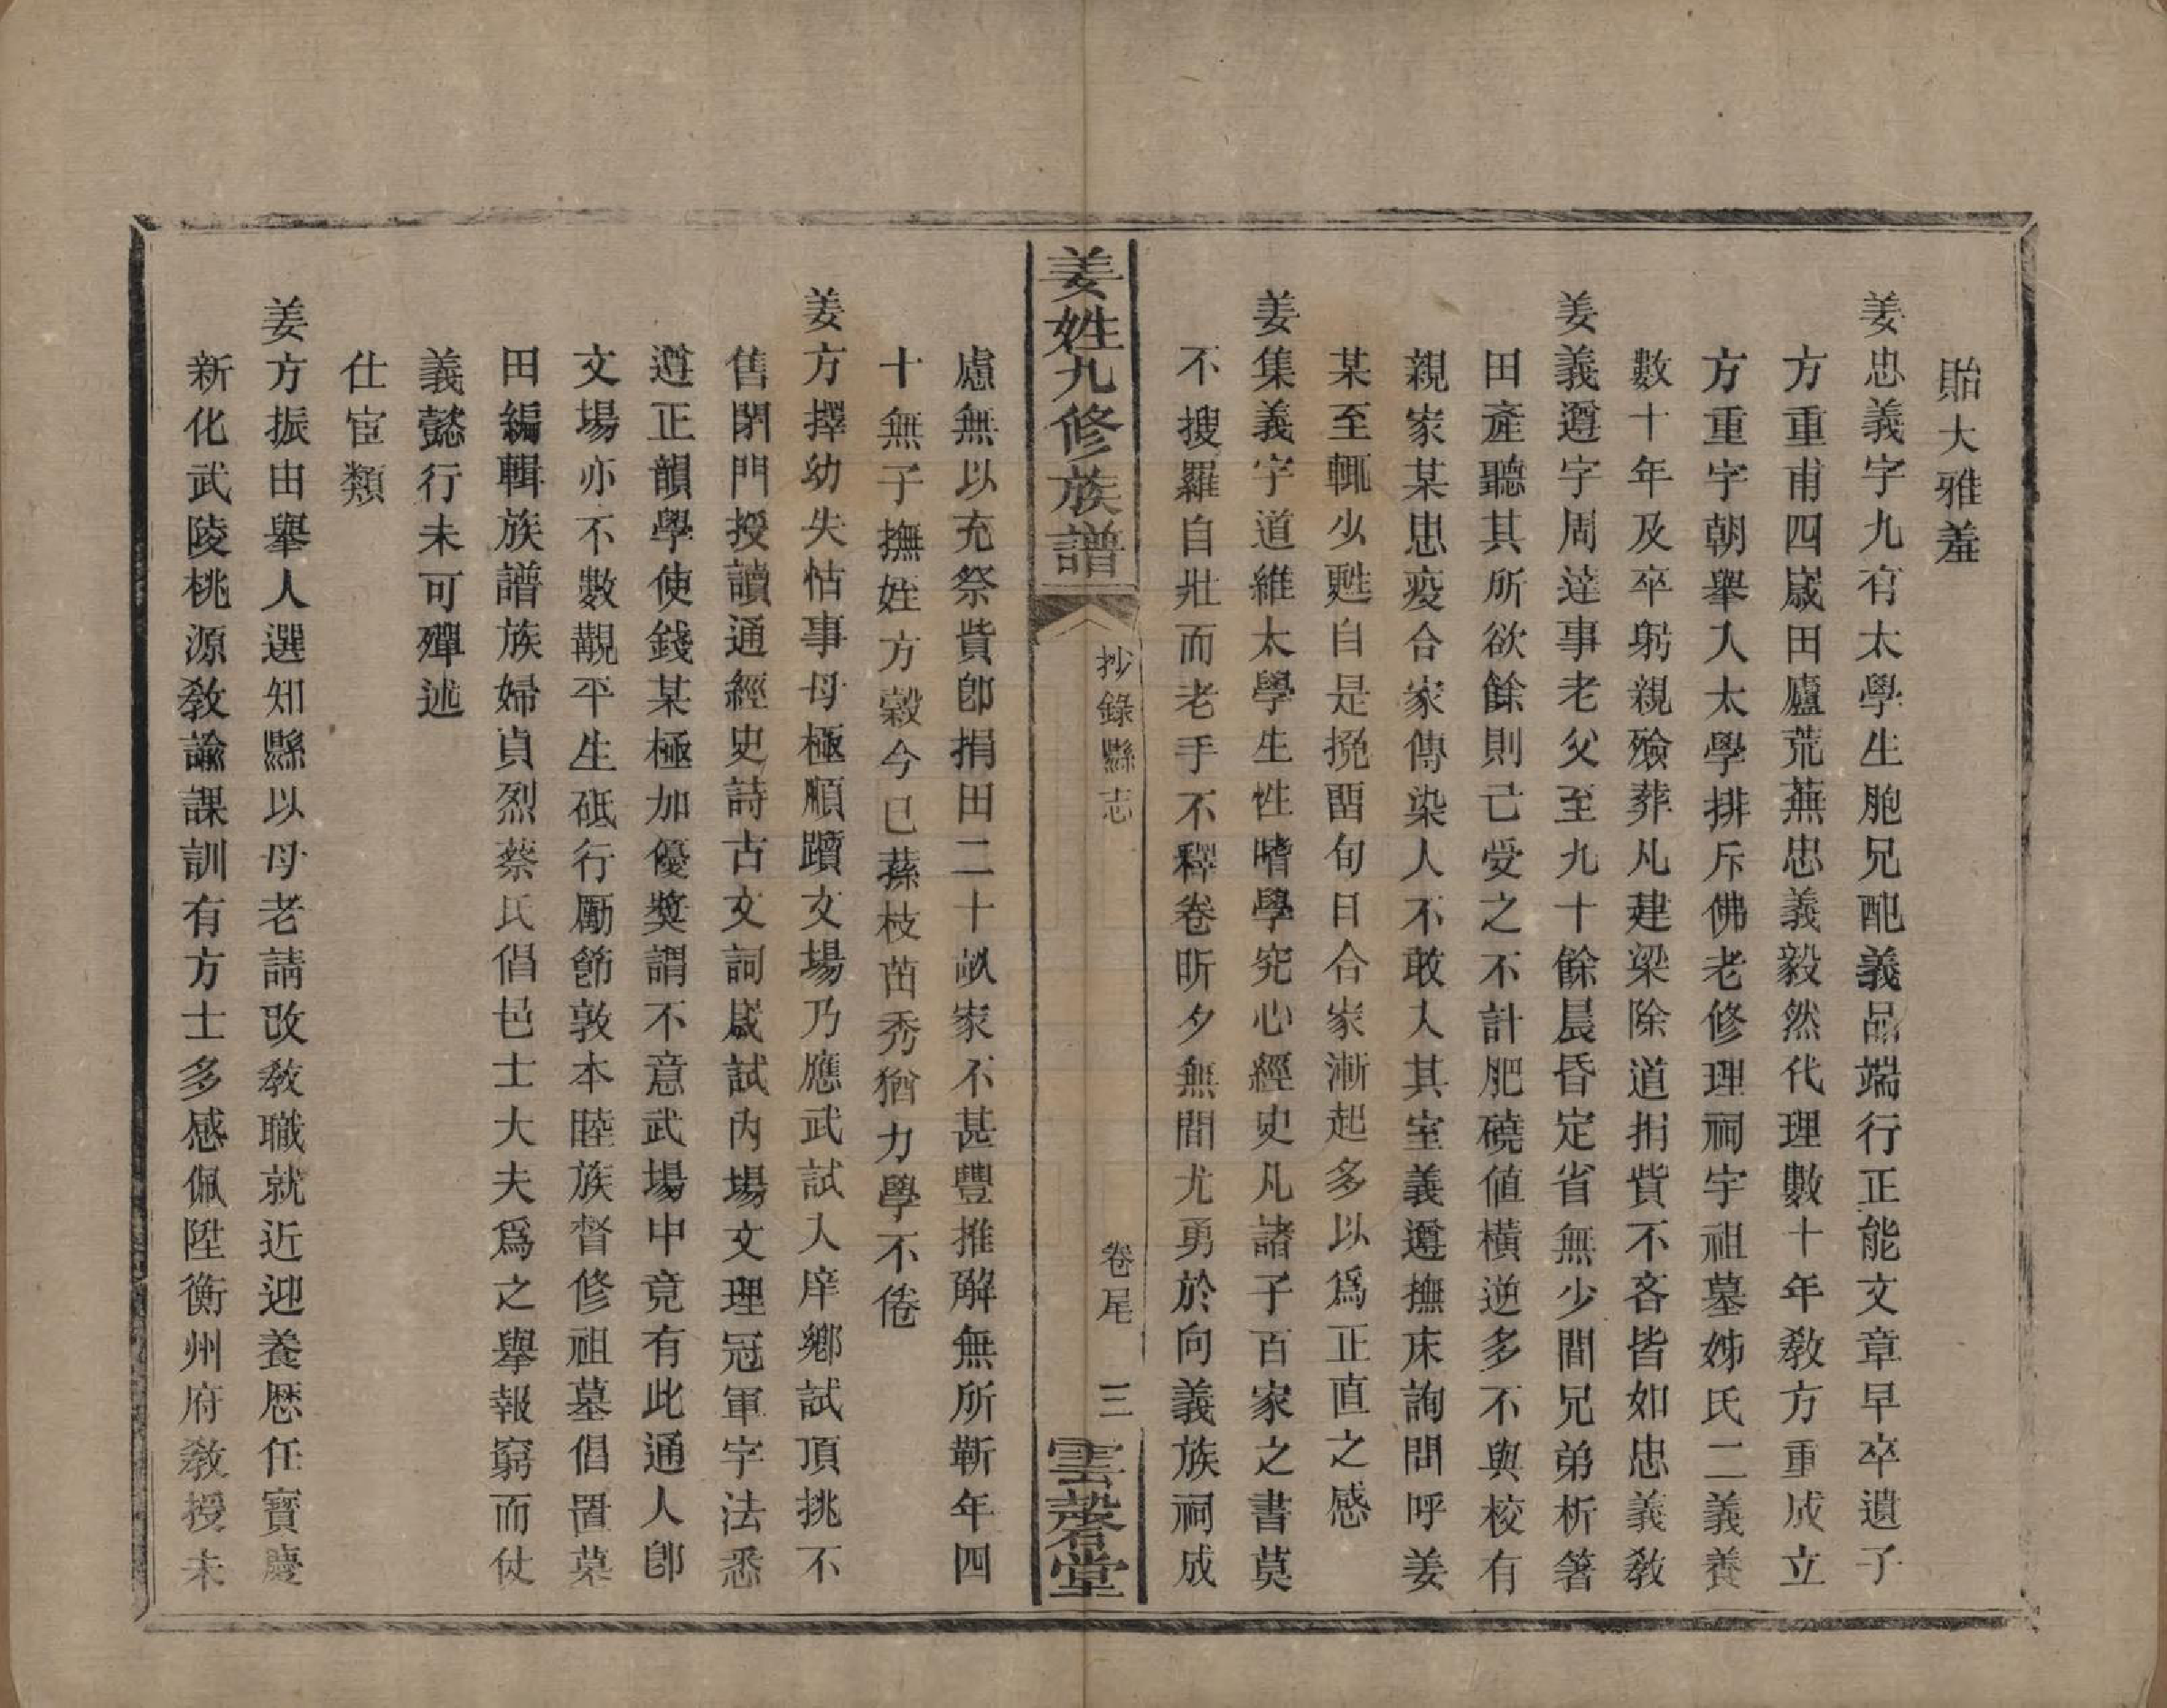 貽大雅羞
姜忠義字九有太學生胞兄配義品端行正能文章早卒遺子
方重甫四歲田廬荒蕪忠義毅然代理數十年教方重成立
方重字朝舉入太學排斥佛老修理祠宇祖墓姊氏二義養
數十年及卒躬親殮葬凡建梁除道捐貲不吝皆如忠義教
姜義遵字周達事老父至九十餘晨昏定省無少間兄弟析箸
田產聽其所欲餘則己受之不計肥磽值橫逆多不與校有
親家某患疫合家傳染人不敢入其室義遵撫床詢問呼姜
某至輒少甦自是挽留旬日合家漸起多以為正直之感
姜集義字道維太學生性嗜學究心經史凡諸子百家之書莫
不搜羅自壯而老手不釋卷昕夕無間尤勇於向義族祠成
姜姓九修族譜
抄錄縣志
卷尾
三
雲磬堂
慮無以充祭貲卽捐田二十畝家不甚豐推解無所靳年四
十無子撫姪方穀今已蓀枝苗秀猶力學不倦
姜方擇幼失怙事母極順躓文場乃應武試入庠鄉試頂挑不
售閉門授讀通經史詩古文詞歲試內場文理冠軍字法悉
遵正韻學使錢某極加優獎謂不意武場中竟有此通人卽
文場亦不數觀平生砥行勵節敦本睦族督修祖墓倡置墓
田編輯族譜族婦貞烈蔡氏倡邑士大夫為之舉報窮而仗
義懿行未可殫述
仕宦類
姜方振由舉人選知縣以母老請改教職就近迎養歷任寶慶
新化武陵桃源教諭課訓有方士多感佩陞衡州府教授未